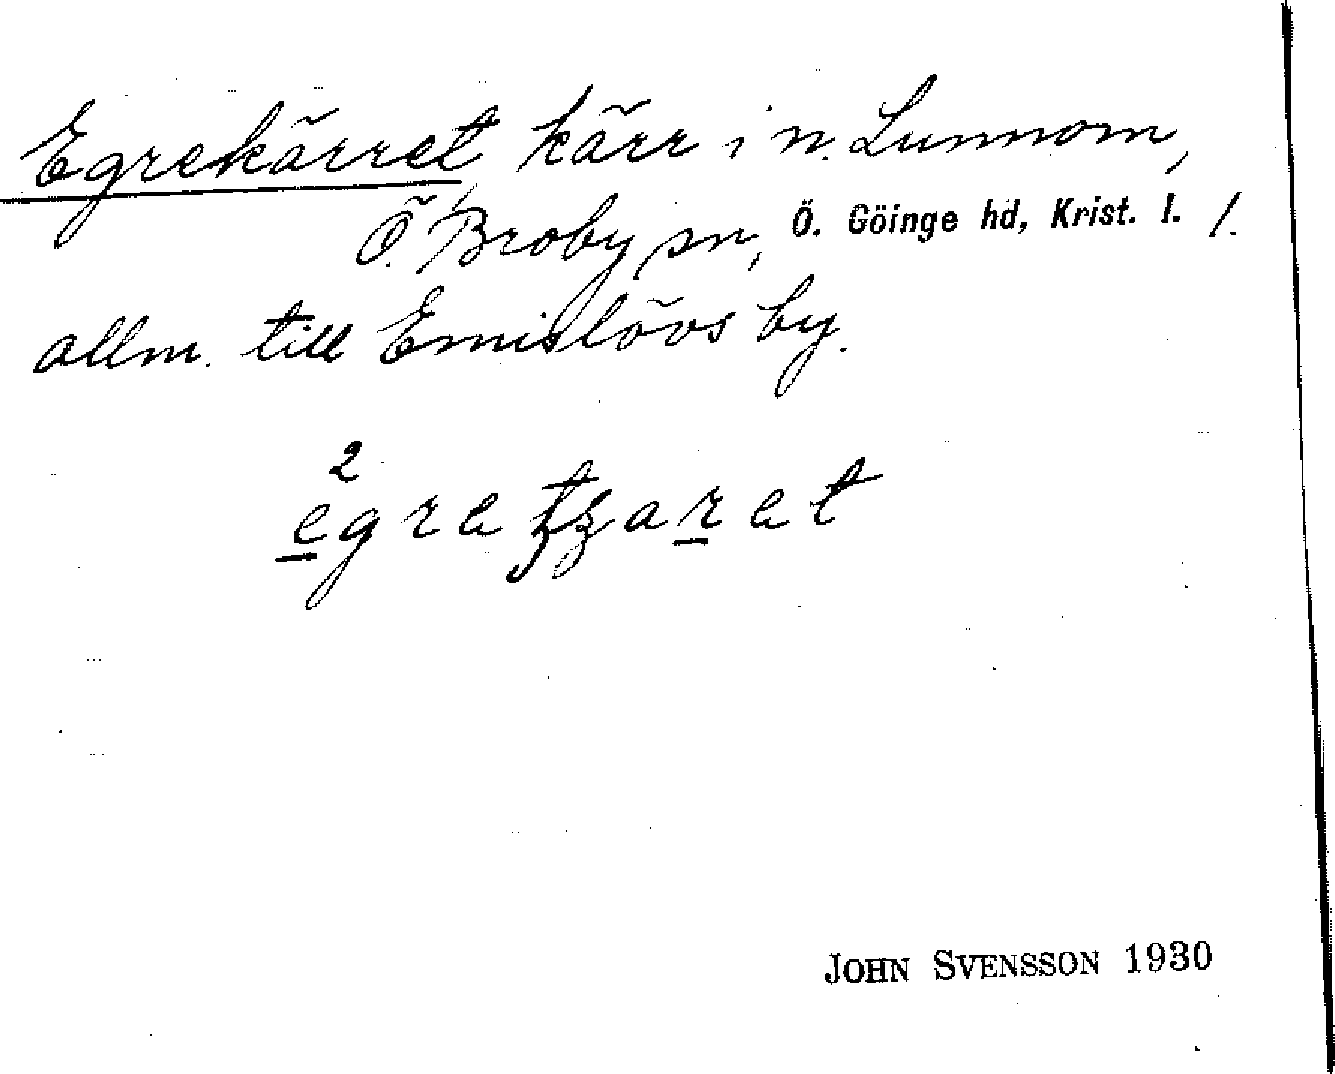 Egrekärret, kärr i n. Lunnom,
Ö. Broby sn, Ö. Göinge hd, Krist. l. /.
allm. till Emislövs by.
2
JOHN SVENSSON 1930